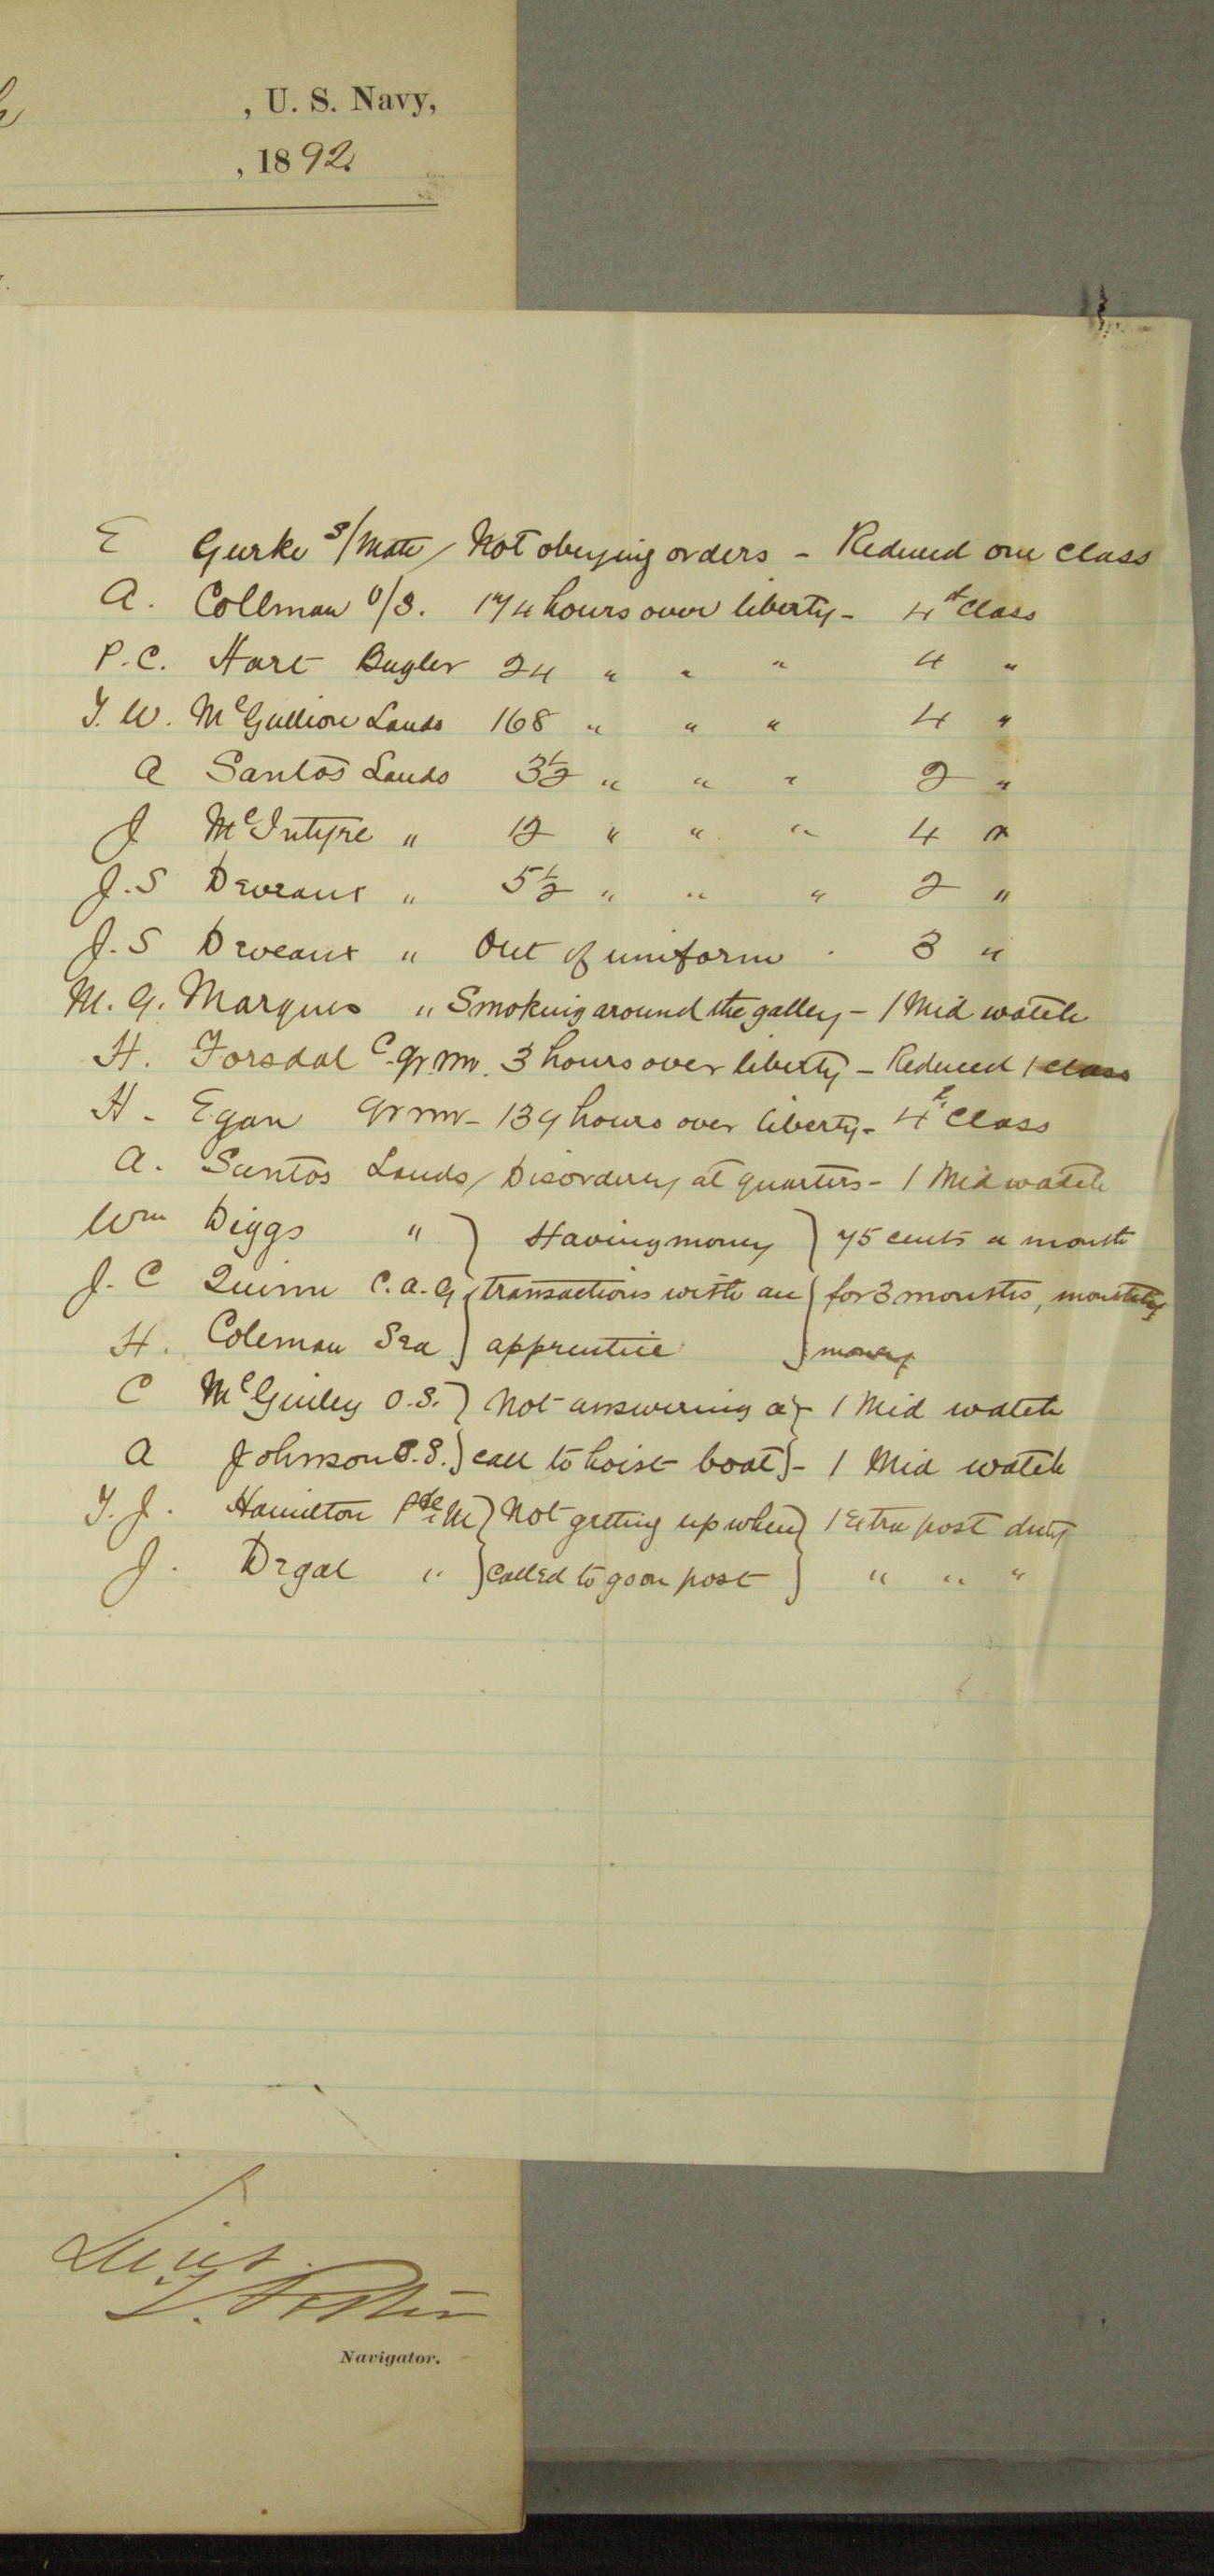 , U. S. Navy,
, 1892.
E Gurke S/Mate / Not obeying orders - Reduced one class
A. Collman O/S. 174 hours over liberty - 4th Class
P.C. Hart Bugler 24 " " " 4 "
T. W. McGullion Lands 168 " " " 4 "
A Santos Lands 3½ " " " 2 "
J McIntyre " 12 " " " 4 "
J.S Deveaux " 5½ " " " 2 "
J.S Deveaux " Out of uniform . 3 "
M. G. Marques " Smoking around the galley - 1 Mid watch
H. Forsdal C. Gr. Mr. 3 hours over liberty - Reduced 1 class
H - Egan Gr Mr - 139 hours over liberty - 4th Class
A. Santos Lands / Disorderly at quarters - 1 Mid watch
Wm Diggs " } Having money } 75 cents a month
J. C Quinn C.A.G } transactions with an } for 3 months, monthly
H. Coleman Sea } apprentice } money
C McGinley O.S. } Not answering a } - 1 Mid watch
A Johnson O.S. } call to hoist boat } - 1 Mid watch
T. J. Hamilton Pte M } Not getting up when } 1 Extra post duty
J. Degal " } called to go on post } " " "
Lieut.
Navigator.